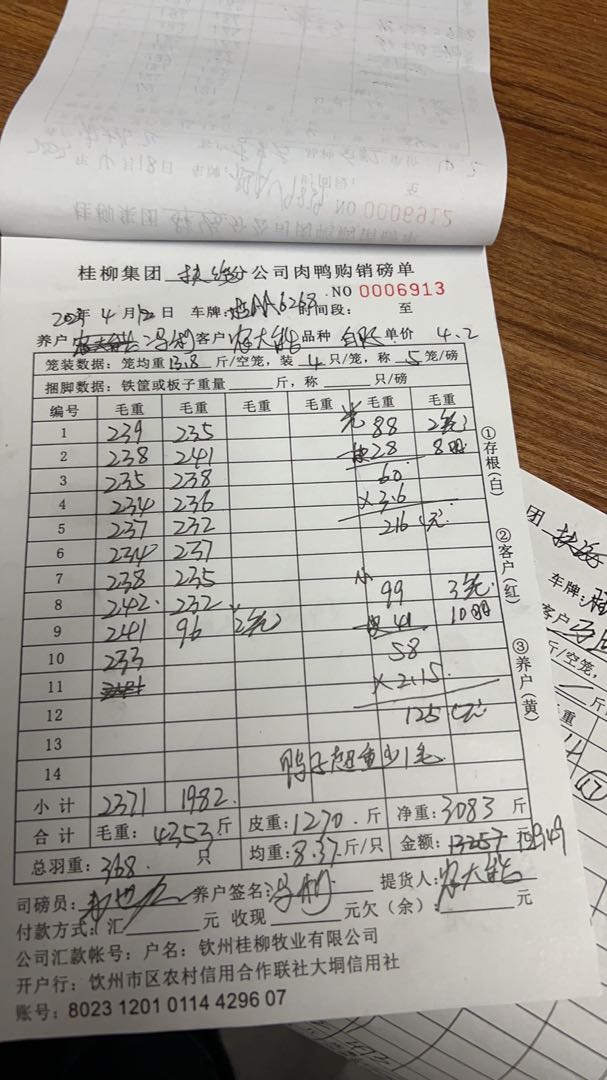 NO 0006912
桂柳集团 扶绥分公司肉鸭购销磅单
NO 0006913
年 4 月 12 日 车牌: AA6268 时间段: 至
养户 客户 农大能 品种 单价 4.2
笼装数据: 笼均重 13.8 斤/空笼, 装 4 只/笼, 称 5 笼/磅
捆脚数据: 铁筐或板子重量 斤, 称 只/磅
编号 毛重 毛重 毛重 毛重 毛重 毛重
1 239 235 88 2笼
2 238 241 28 8only
3 235 238 60
4 234 236 ×3.6
5 237 232 216元
6 234 237
7 238 235
8 242 232 99 3笼
9 241 96 2笼 41
10 233 58
11 ×2.15
12 125元
13
14 鸭子超重少1毛
小计 2371 1982
合计 毛重: 4353斤 皮重: 1270 斤 净重: 3083 斤
总羽重: 368 只 均重: 8.37斤/只 金额: 13257
司磅员: 养户签名: 提货人: 农大能
付款方式: 汇 元 收现 元欠(余): 元
公司汇款帐号: 户名: 钦州桂柳牧业有限公司
开户行: 钦州市区农村信用合作联社大垌信用社
账号: 8023 1201 0114 4296 07
①存根(白)
②客户(红)
③养户(黄)
团 扶绥
车牌:
斤/空笼,